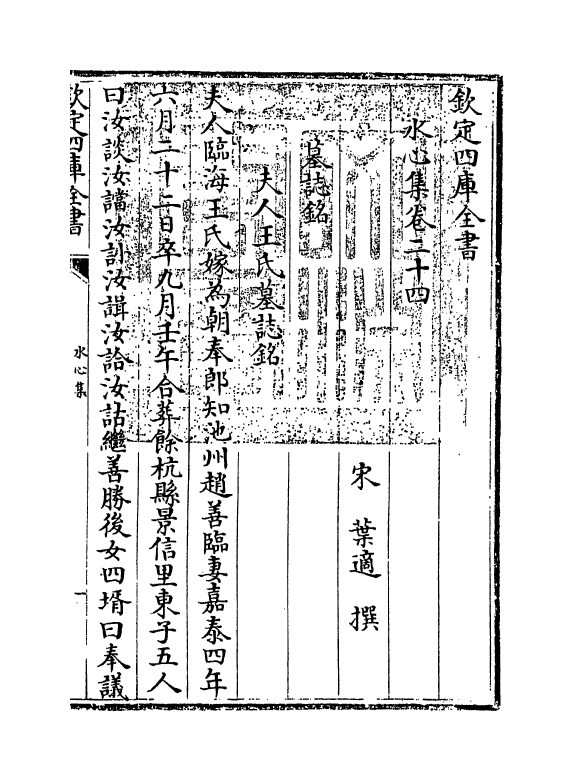 欽定四庫全書
水心集卷二十四
宋　葉適　撰
墓誌銘
夫人王氏墓誌銘
夫人臨海王氏嫁為朝奉郎知池州趙善臨妻嘉泰四年
六月二十二日卒九月壬午合葬餘杭縣景信里東子五人
曰汝談汝讜汝訃汝諿汝詥汝詁繼善勝後女四壻曰奉議
欽定四庫全書
水心集
一